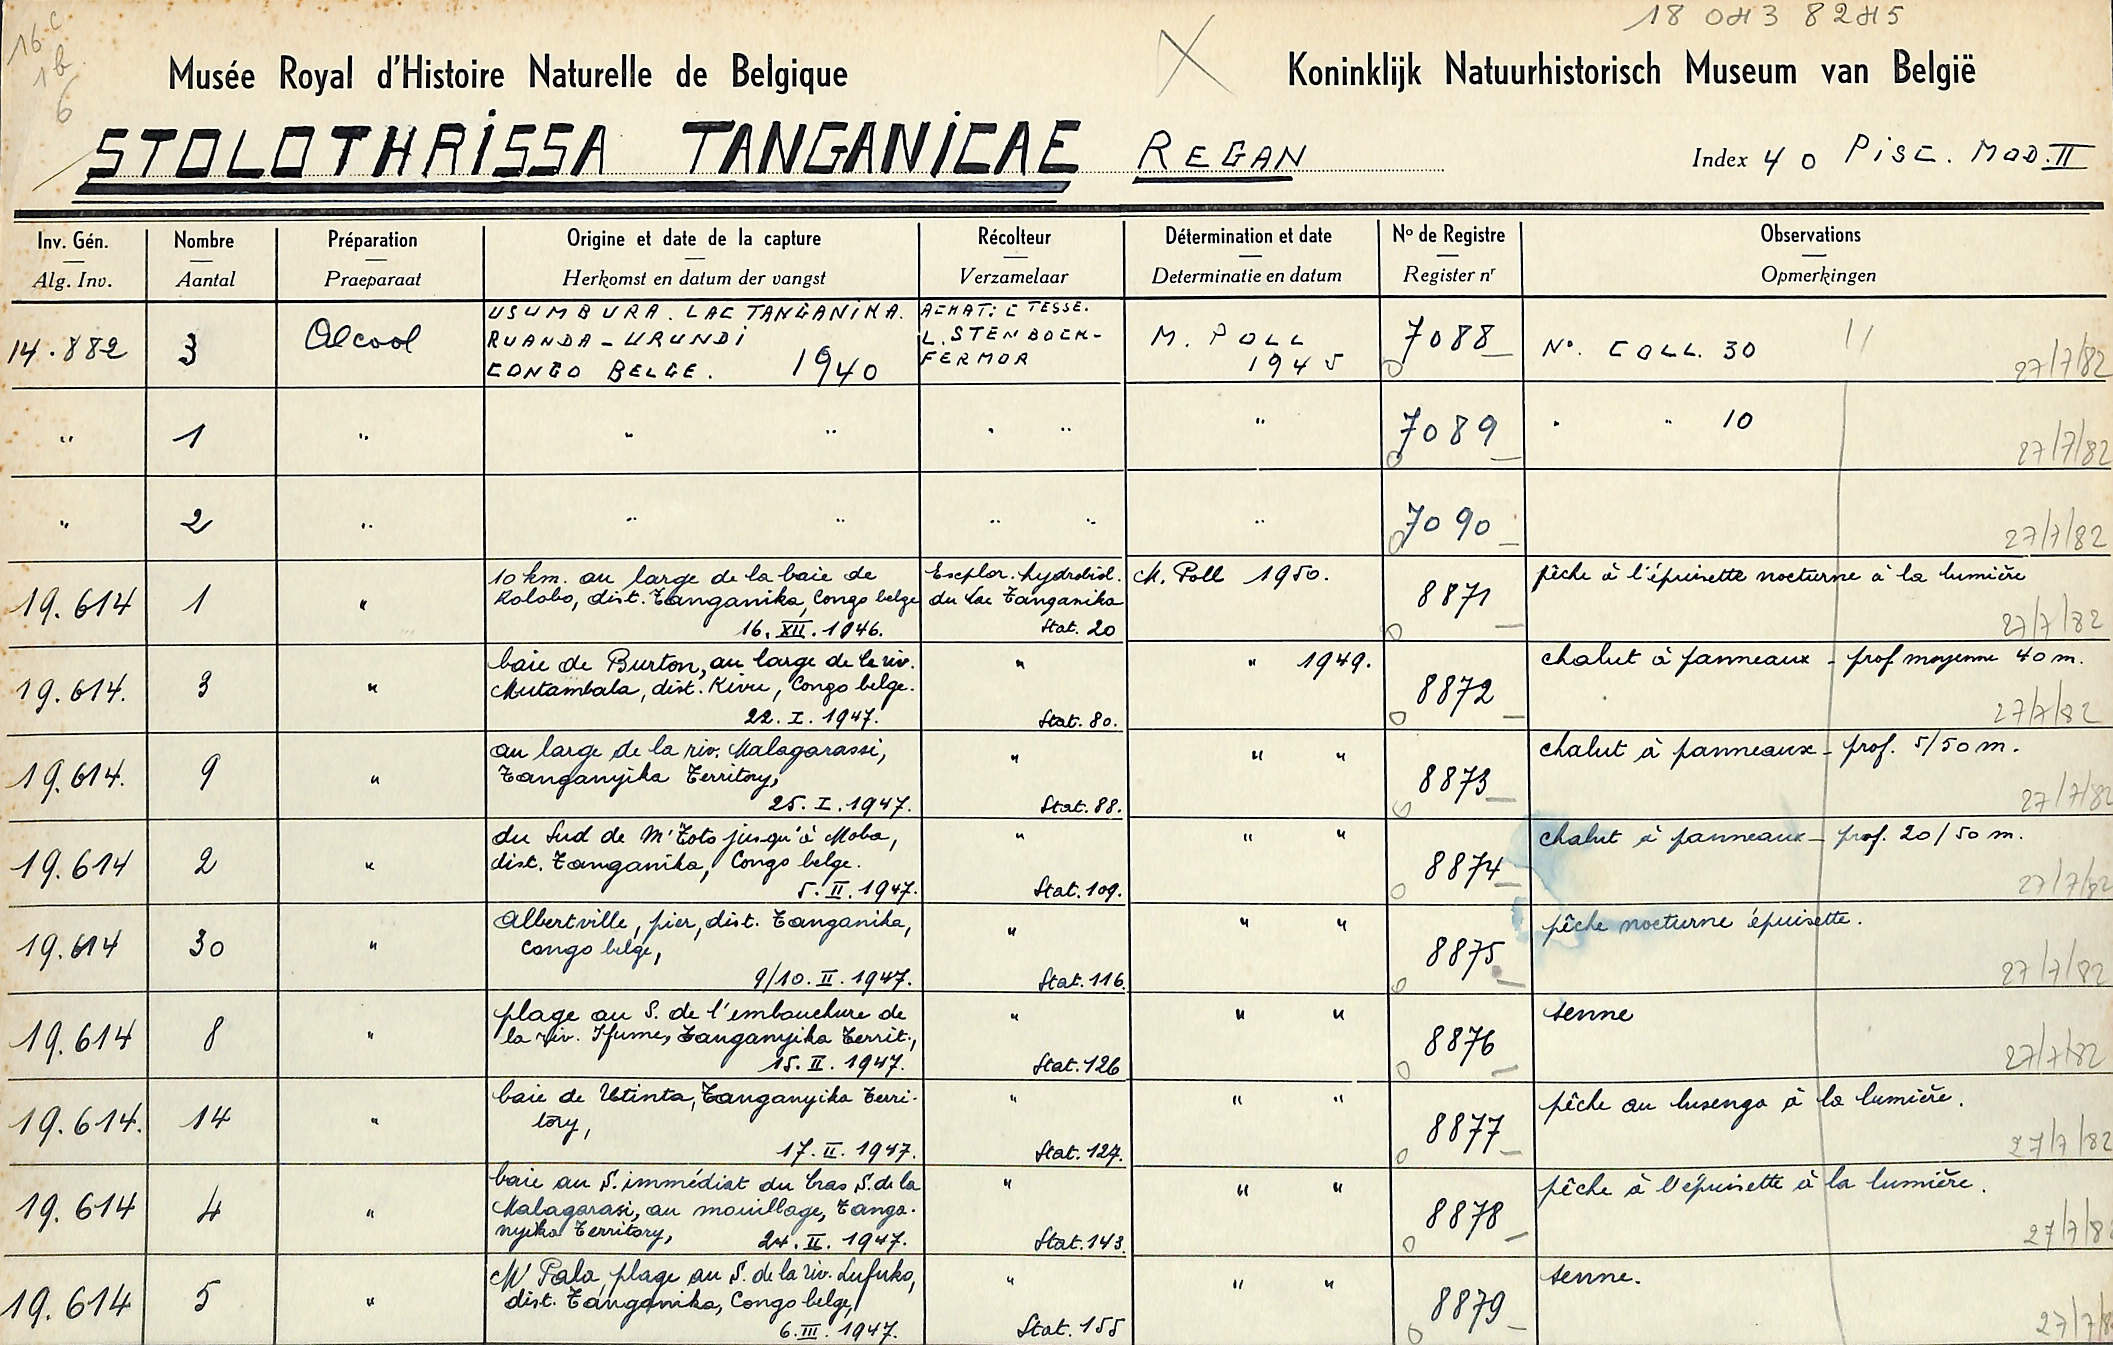 18 043 8245
16 c
1b
6
Musée Royal d'Histoire Naturelle de Belgique
Koninklijk Natuurhistorisch Museum van België
STOLOTHRISSA TANGANICAE REGAN
Index 40 PISC. MOD. II
Inv. Gén. Nombre Préparation Origine et date de la capture Récolteur Détermination et date No de Registre Observations
Alg. Inv. Aantal Praeparaat Herkomst en datum der vangst Verzamelaar Determinatie en datum Register nr Opmerkingen
USUMBURA. LAC TANGANIKA. ACHAT: CTESSE.
14.882 3 Alcool RUANDA-URUNDI L. STENBOCK- M. POLL 7088 No. COLL. 30
CONGO BELGE. 1940 FERMOR 1945 27/7/82
" 1 " " " " " " 7089 " " 10
27/7/82
" 2 " " " " " " 7090
27/7/82
10 km. au large de la baie de Explor. hydrobiol. M. Poll 1950. pêche à l'épuisette nocturne à la lumière
19.614 1 " Rolobo, dist. Tanganika, Congo belge du Lac Tanganika 8871
16.XII.1946. Stat. 20 27/7/82
baie de Burton, au large de la riv. " " 1949. chalut à panneaux - prof moyenne 40 m.
19.614. 3 " Mutambala, dist. Kivu, Congo belge. 8872
22.I.1947. Stat. 80. 27/7/82
au large de la riv. Malagarassi, " " " chalut à panneaux - prof. 5/50 m.
19.614. 9 " Tanganyika Territory, 8873
25.I.1947. Stat. 88. 27/7/82
du Sud de M'Toto jusqu'à Moba, " " " chalut à panneaux - prof. 20/50 m.
19.614 2 " dist. Tanganika, Congo belge. 8874
5.II.1947. Stat. 109. 27/7/82
Albertville, pier, dist. Tanganika, " " " pêche nocturne épuisette.
19.614 30 " Congo belge, 8875
9/10.II.1947. Stat. 116. 27/7/82
plage au S. de l'embouchure de " " " senne
19.614 8 " la riv. Ifume, Tanganyika Territ., 8876
15.II.1947. Stat. 126 27/7/82
baie de Utinta, Tanganyika Terri- " " " pêche au lusenga à la lumière.
19.614. 14 " tory, 8877
17.II.1947. Stat. 127. 27/7/82
baie au S. immédiat du bras S. de la " " " pêche à l'épuisette à la lumière.
19.614 4 " Malagarasi, au mouillage, Tanga- 8878
nyika Territory, 24.II.1947. Stat. 143. 27/7/82
M'Pala, plage au S. de la riv. Lufuko, " " " senne.
19.614 5 " dist. Tanganika, Congo belge, 8879
6.III.1947. Stat. 155 27/7/8